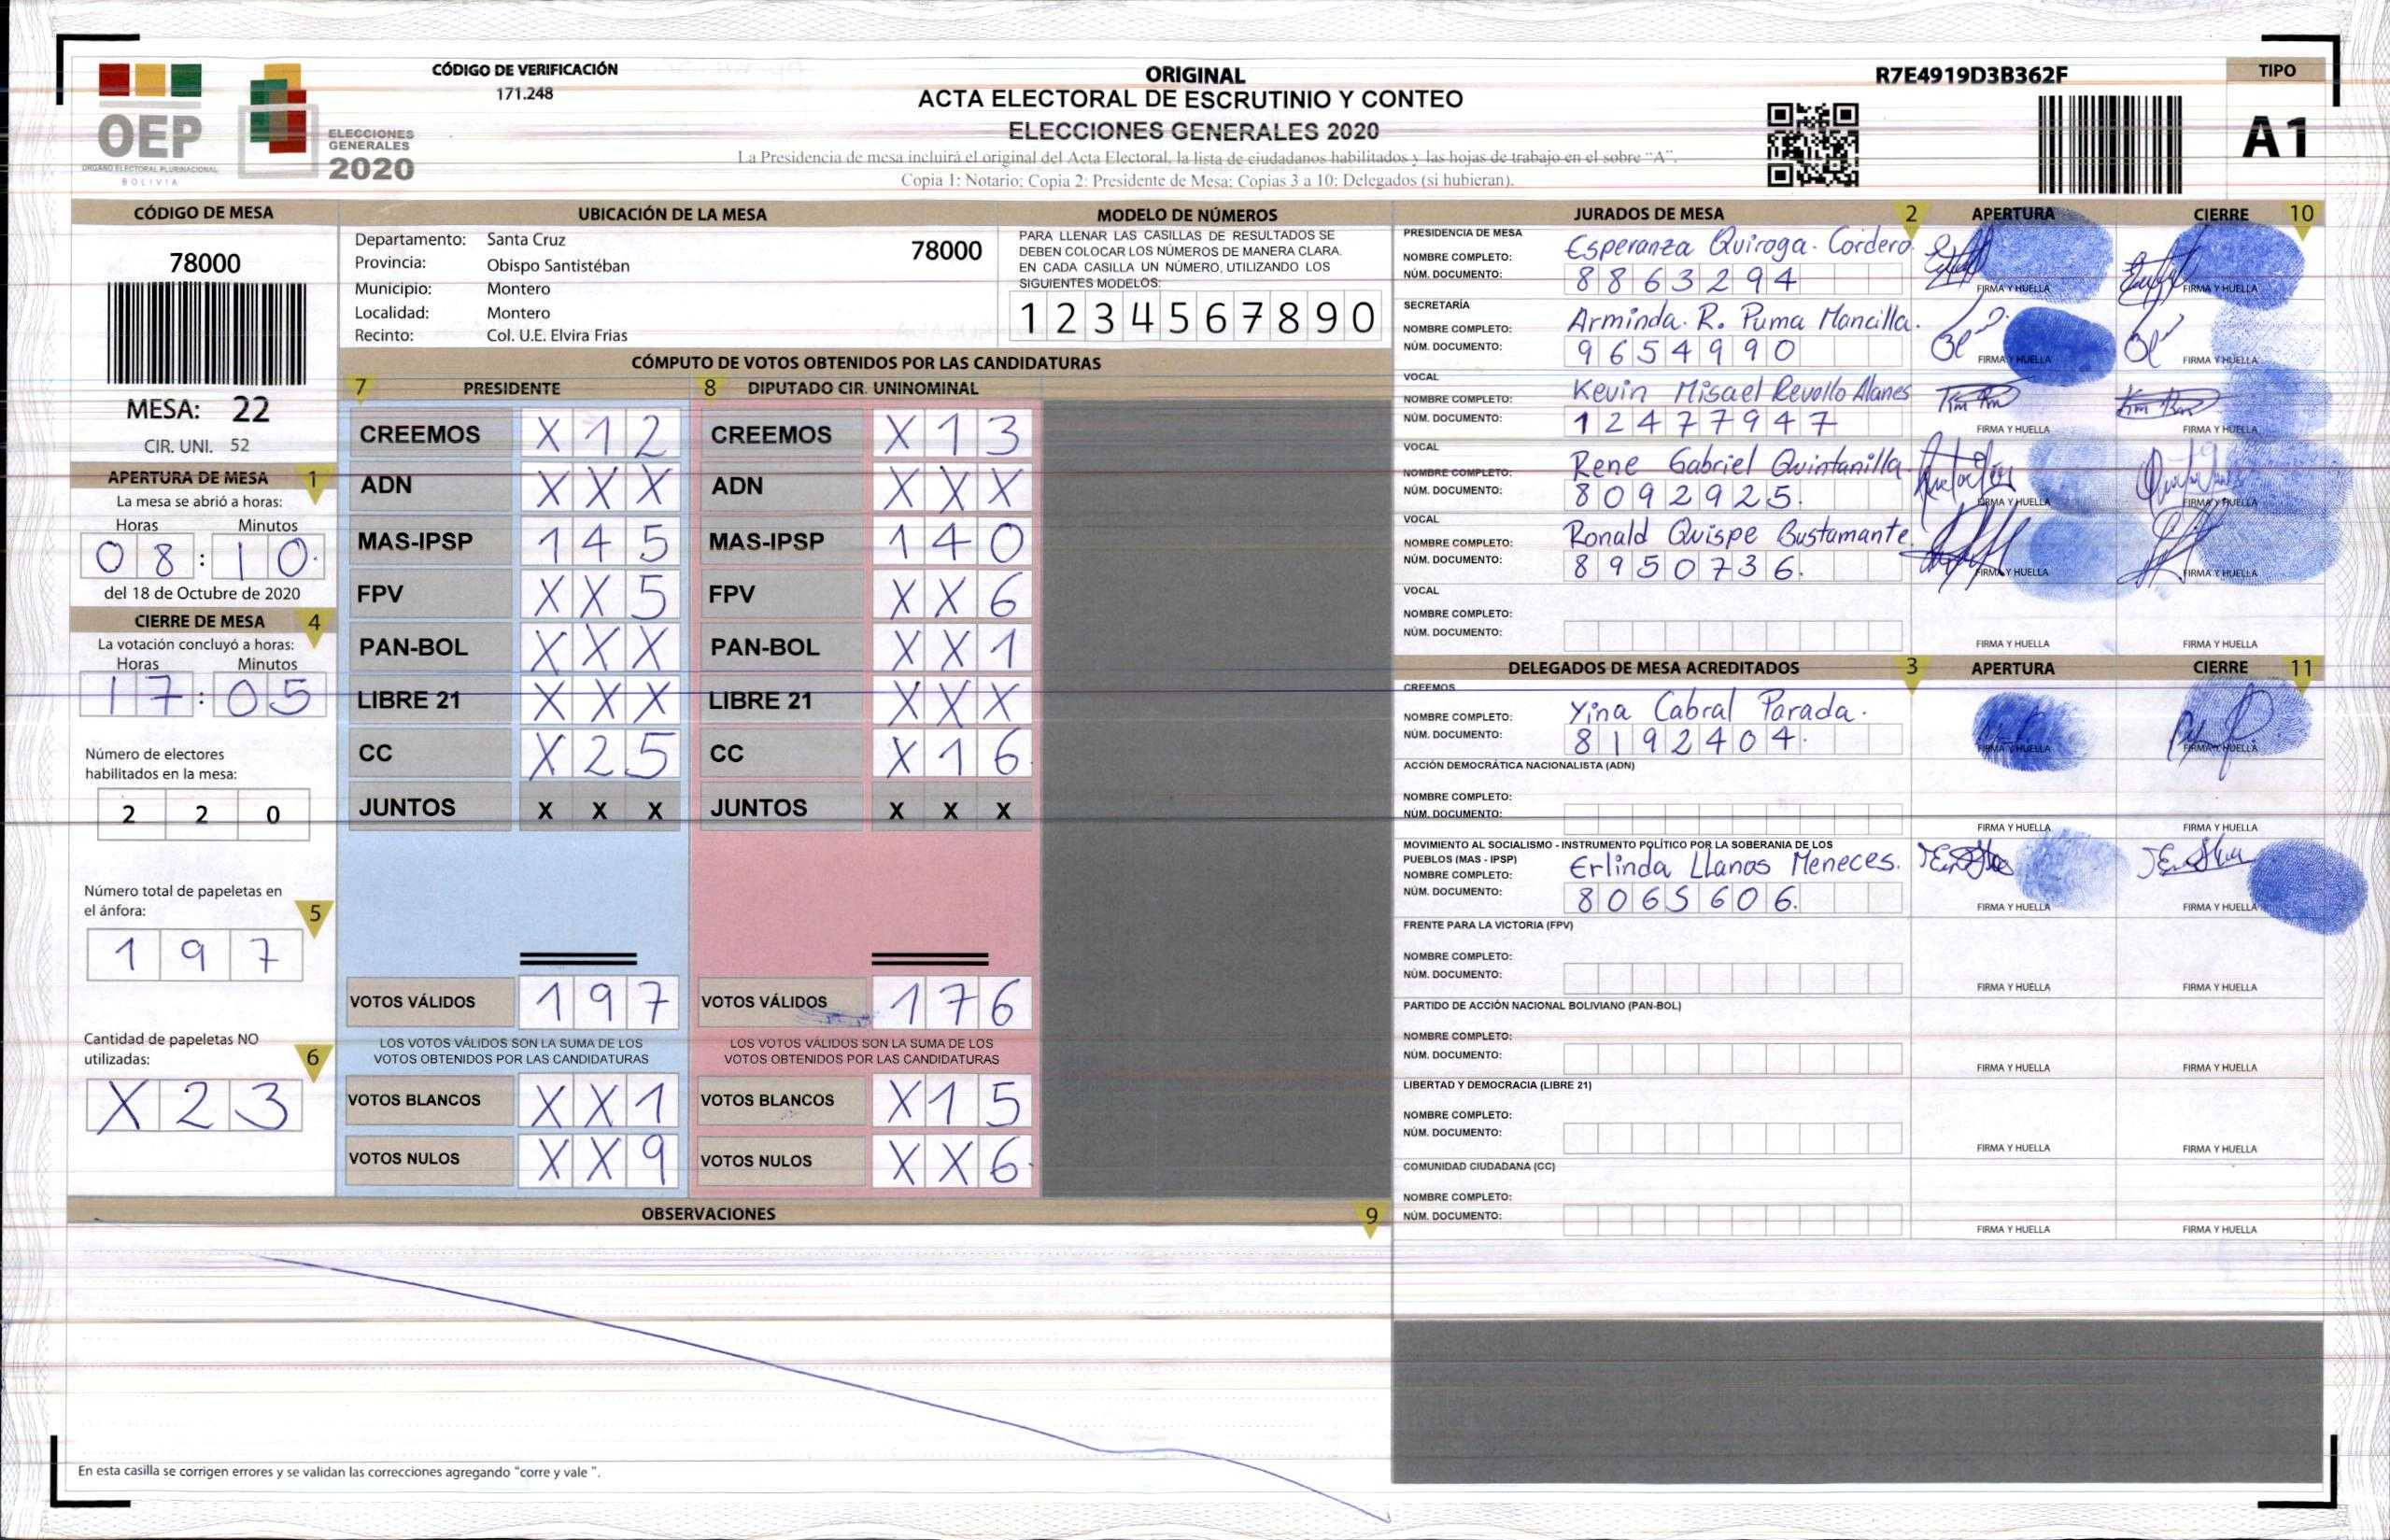 CÓDIGO DE VERIFICACIÓN
171.248
ORIGINAL
ACTA ELECTORAL DE ESCRUTINIO Y CONTEO
ELECCIONES GENERALES 2020
La Presidencia de mesa incluirá el original del Acta Electoral, la lista de ciudadanos habilitados y las hojas de trabajo en el sobre "A".
Copia 1: Notario; Copia 2: Presidente de Mesa; Copias 3 a 10: Delegados (si hubieran).
R7E4919D3B362F
TIPO
A1
OEP
ÓRGANO ELECTORAL PLURINACIONAL
BOLIVIA
ELECCIONES
GENERALES
2020
CÓDIGO DE MESA
78000
MESA: 22
CIR. UNI. 52
UBICACIÓN DE LA MESA
Departamento: Santa Cruz
78000
Provincia: Obispo Santistéban
Municipio: Montero
Localidad: Montero
Recinto: Col. U.E. Elvira Frias
MODELO DE NÚMEROS
PARA LLENAR LAS CASILLAS DE RESULTADOS SE
DEBEN COLOCAR LOS NÚMEROS DE MANERA CLARA.
EN CADA CASILLA UN NÚMERO, UTILIZANDO LOS
SIGUIENTES MODELOS:
1 2 3 4 5 6 7 8 9 0
APERTURA DE MESA 1
La mesa se abrió a horas:
Horas Minutos
08:10.
del 18 de Octubre de 2020
CIERRE DE MESA 4
La votación concluyó a horas:
Horas Minutos
17:05
Número de electores
habilitados en la mesa:
2 2 0
Número total de papeletas en
el ánfora: 5
1 9 7
Cantidad de papeletas NO
utilizadas: 6
X 2 3
CÓMPUTO DE VOTOS OBTENIDOS POR LAS CANDIDATURAS
7 PRESIDENTE
CREEMOS X 1 2
ADN X X X
MAS-IPSP 1 4 5
FPV X X 5
PAN-BOL X X X
LIBRE 21 X X X
CC X 2 5
JUNTOS X X X
VOTOS VÁLIDOS 1 9 7
LOS VOTOS VÁLIDOS SON LA SUMA DE LOS
VOTOS OBTENIDOS POR LAS CANDIDATURAS
VOTOS BLANCOS X X 1
VOTOS NULOS X X 9
8 DIPUTADO CIR. UNINOMINAL
CREEMOS X 1 3
ADN X X X
MAS-IPSP 1 4 0
FPV X X 6
PAN-BOL X X 1
LIBRE 21 X X X
CC X 1 6
JUNTOS X X X
VOTOS VÁLIDOS 1 7 6
LOS VOTOS VÁLIDOS SON LA SUMA DE LOS
VOTOS OBTENIDOS POR LAS CANDIDATURAS
VOTOS BLANCOS X 1 5
VOTOS NULOS X X 6
OBSERVACIONES 9
En esta casilla se corrigen errores y se validan las correcciones agregando "corre y vale ".
JURADOS DE MESA 2 APERTURA CIERRE 10
PRESIDENCIA DE MESA
NOMBRE COMPLETO: Esperanza Quiroga. Cordero.
NÚM. DOCUMENTO: 8863294
FIRMA Y HUELLA FIRMA Y HUELLA
SECRETARÍA
NOMBRE COMPLETO: Arminda. R. Puma Mancilla.
NÚM. DOCUMENTO: 9654990
FIRMA Y HUELLA FIRMA Y HUELLA
VOCAL
NOMBRE COMPLETO: Kevin Misael Revollo Alanes
NÚM. DOCUMENTO: 12477947
FIRMA Y HUELLA FIRMA Y HUELLA
VOCAL
NOMBRE COMPLETO: Rene Gabriel Quintanilla.
NÚM. DOCUMENTO: 8092925.
FIRMA Y HUELLA FIRMA Y HUELLA
VOCAL
NOMBRE COMPLETO: Ronald Quispe Bustamante.
NÚM. DOCUMENTO: 8950736.
FIRMA Y HUELLA FIRMA Y HUELLA
VOCAL
NOMBRE COMPLETO:
NÚM. DOCUMENTO:
FIRMA Y HUELLA FIRMA Y HUELLA
DELEGADOS DE MESA ACREDITADOS 3 APERTURA CIERRE 11
CREEMOS
NOMBRE COMPLETO: Yina Cabral Parada.
NÚM. DOCUMENTO: 8192404.
FIRMA Y HUELLA FIRMA Y HUELLA
ACCIÓN DEMOCRÁTICA NACIONALISTA (ADN)
NOMBRE COMPLETO:
NÚM. DOCUMENTO:
FIRMA Y HUELLA FIRMA Y HUELLA
MOVIMIENTO AL SOCIALISMO - INSTRUMENTO POLÍTICO POR LA SOBERANIA DE LOS
PUEBLOS (MAS - IPSP)
NOMBRE COMPLETO: Erlinda Llanos Meneces.
NÚM. DOCUMENTO: 8065606.
FIRMA Y HUELLA FIRMA Y HUELLA
FRENTE PARA LA VICTORIA (FPV)
NOMBRE COMPLETO:
NÚM. DOCUMENTO:
FIRMA Y HUELLA FIRMA Y HUELLA
PARTIDO DE ACCIÓN NACIONAL BOLIVIANO (PAN-BOL)
NOMBRE COMPLETO:
NÚM. DOCUMENTO:
FIRMA Y HUELLA FIRMA Y HUELLA
LIBERTAD Y DEMOCRACIA (LIBRE 21)
NOMBRE COMPLETO:
NÚM. DOCUMENTO:
FIRMA Y HUELLA FIRMA Y HUELLA
COMUNIDAD CIUDADANA (CC)
NOMBRE COMPLETO:
NÚM. DOCUMENTO:
FIRMA Y HUELLA FIRMA Y HUELLA